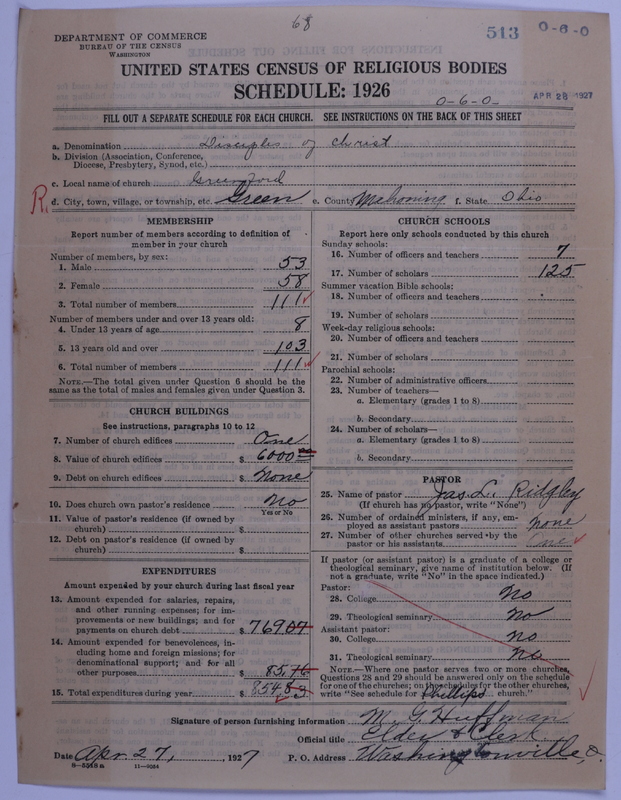 68
513 0-6-0
DEPARTMENT OF COMMERCE
BUREAU OF THE CENSUS
WASHINGTON
UNITED STATES CENSUS OF RELIGIOUS BODIES
SCHEDULE: 1926
0-6-0-
APR 28 1927
FILL OUT A SEPARATE SCHEDULE FOR EACH CHURCH. SEE INSTRUCTIONS ON THE BACK OF THIS SHEET
a. Denomination Disciples of Christ
b. Division (Association, Conference, Diocese, Presbytery, Synod, etc.)
c. Local name of church Greenford
R. d. City, town, village, or township, etc. Green e. County Mahoning f. State Ohio
MEMBERSHIP
Report number of members according to definition of
member in your church
Number of members, by sex:
1. Male 53
2. Female 58
3. Total number of members 111
Number of members under and over 13 years old:
4. Under 13 years of age 8
5. 13 years old and over 103
6. Total number of members 111
NOTE.—The total given under Question 6 should be the
same as the total of males and females given under Question 3.
CHURCH BUILDINGS
See instructions, paragraphs 10 to 12
7. Number of church edifices One
8. Value of church edifices $ 6000
9. Debt on church edifices $ None
10. Does church own pastor's residence No
Yes or No
11. Value of pastor's residence (if owned by
church) $
12. Debt on pastor's residence (if owned by
church) $
EXPENDITURES
Amount expended by your church during last fiscal year
13. Amount expended for salaries, repairs,
and other running expenses; for im-
provements or new buildings; and for
payments on church debt $ 769 07
14. Amount expended for benevolences, in-
cluding home and foreign missions; for
denominational support; and for all
other purposes 85.76
15. Total expenditures during year $ 854 83
CHURCH SCHOOLS
Report here only schools conducted by this church
Sunday schools:
16. Number of officers and teachers 7
17. Number of scholars 125
Summer vacation Bible schools:
18. Number of officers and teachers
19. Number of scholars
Week-day religious schools:
20. Number of officers and teachers
21. Number of scholars
Parochial schools:
22. Number of administrative officers
23. Number of teachers—
a. Elementary (grades 1 to 8)
b. Secondary
24. Number of scholars—
a. Elementary (grades 1 to 8)
b. Secondary
PASTOR
25. Name of pastor Jas. L. Ridgley
(If church has no pastor, write "None")
26. Number of ordained ministers, if any, em-
ployed as assistant pastors none
27. Number of other churches served by the
pastor or his assistants One
If pastor (or assistant pastor) is a graduate of a college or
theological seminary, give name of institution below. (If
not a graduate, write "No" in the space indicated.)
Pastor:
28. College No
29. Theological seminary No
Assistant pastor:
30. College no
31. Theological seminary no
NOTE.—Where one pastor serves two or more churches,
Questions 28 and 29 should be answered only on the schedule
for one of the churches; on the schedules for the other churches,
write "See schedule for Phillips church."
Signature of person furnishing information M. G. Huffman
Official title Elder & Clerk
Date Apr 27, 1927 P. O. Address Washingtonville, O.
8—5518a 11—9084